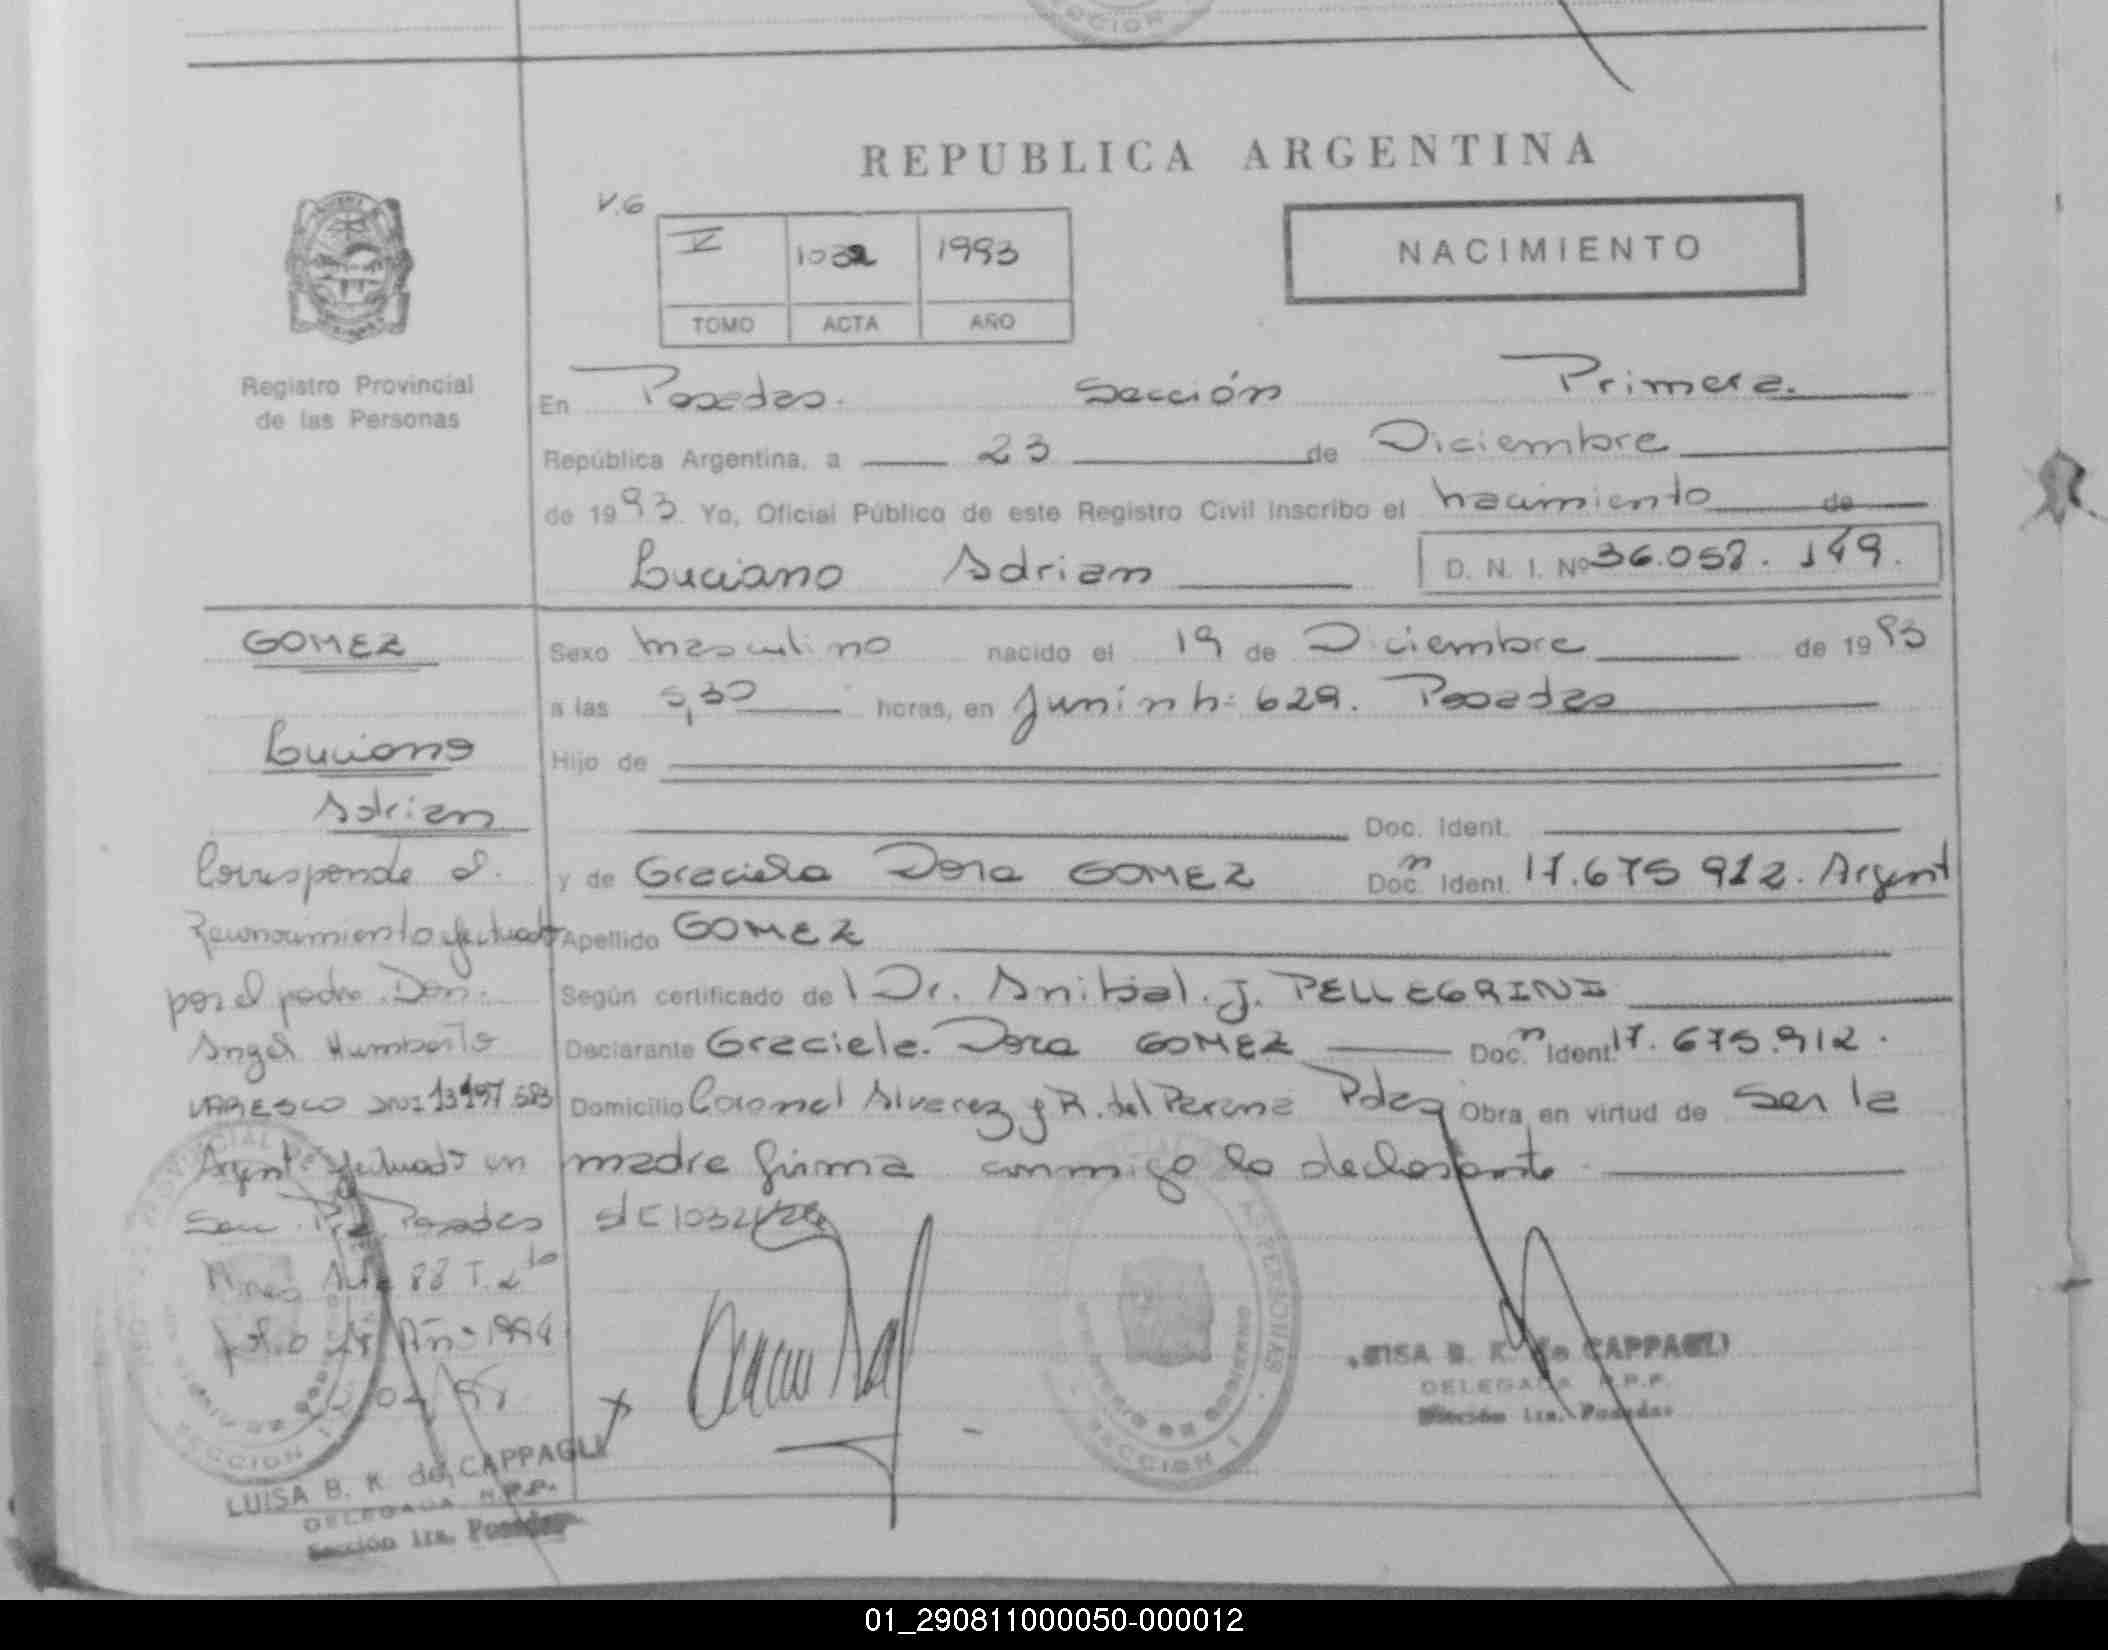 SECCION
REPUBLICA ARGENTINA
V.G
V 1032 1993
TOMO ACTA AÑO
NACIMIENTO
Registro Provincial
de las Personas
En Posadas. Sección Primera.
República Argentina, a 23 de Diciembre
de 1993. Yo, Oficial Público de este Registro Civil inscribo el nacimiento de
Luciano Adrian D. N. I. Nº 36.058.149.
GOMEZ
Luciano
Adrian
Corresponde al
Reconocimiento efectuado
por el padre. Don.
Angel Humberto
VARESCO DNI 13.197.583
Argent efectuado en
Secc. Pra. Posadas
Acta 88 T. 2do
Año 1994
Sexo masculino nacido el 19 de Diciembre de 1993
a las 5,30 horas, en Junin nº: 629. Posadas
Hijo de
Doc. Ident.
y de Graciela Dora GOMEZ Doc. Ident. 17.675.912. Argent
Apellido GOMEZ
Según certificado de l Dr. Anibal. J. PELLEGRINI
Declarante Graciela. Dora GOMEZ Doc. Ident. 17.675.912.
Domicilio Coronel Alvarez y R. del Parana Pdas Obra en virtud de ser la
madre firma conmigo la declarante
s/c 1032
SECCION I
LUISA B. K. de CAPPAGLI
DELEGADA R.P.P.
Sección 1ra. Posadas
LUISA B. K. de CAPPAGLI
DELEGADA R.P.P.
Sección 1ra. Posadas
01_290811000050-000012